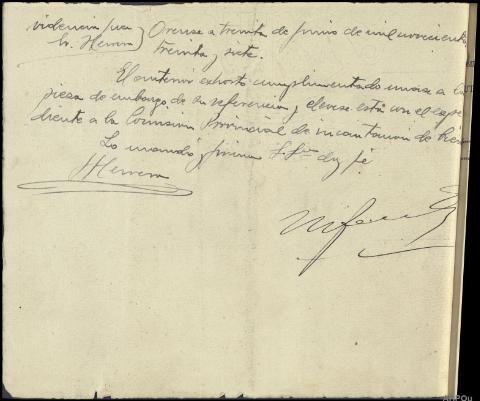 videncia Juez Orense a treinta de junio de mil novecientos
Sr. Herrera treinta y siete.
El anterior exhorto cumplimentado unase a la
pieza de embargo de su referencia y elevese esta con el expe
diente a la Comision Provincial de incautacion de bienes
Lo mandó y firma S. Sria doy fe
Herrera
AHPOu